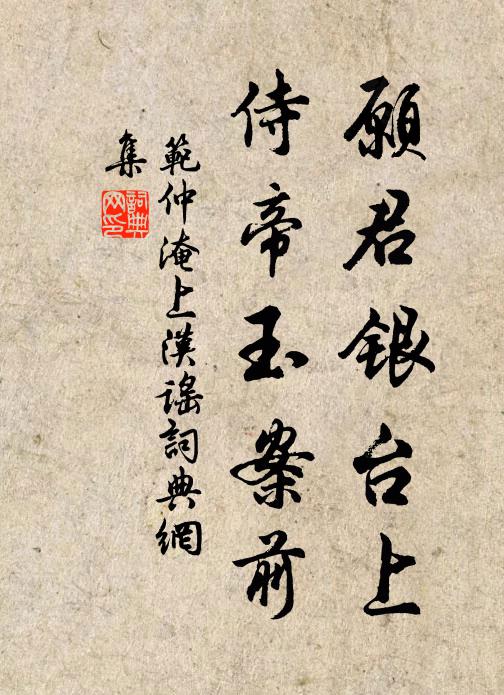 願君銀台上
侍帝玉案前
範仲淹上漢謠詞典網
集
詞典
网印